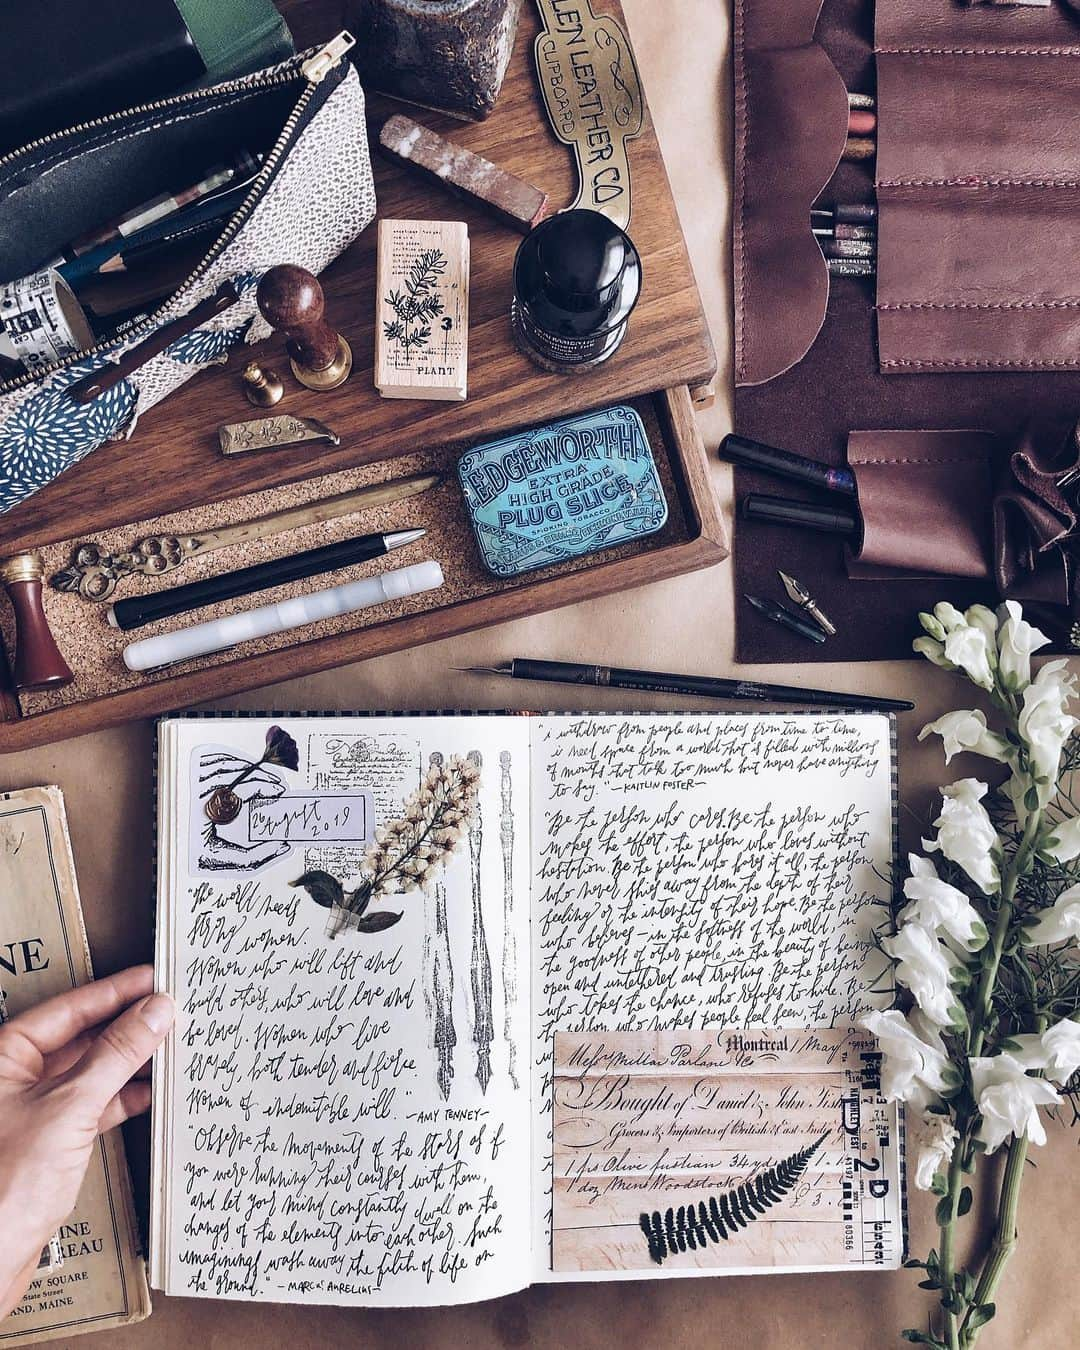 LEN LEATHER CO
CLIPBOARD
3
PLANT
EDGEWORTH
EXTRA
HIGH GRADE
PLUG SLICE
SMOKING TOBACCO
26
August
2019
"The world needs
strong
women.
Women who will lift and
build others, who will love and
be loved. Women who live
bravely, both tender and fierce.
Women of indomitable will."
—AMY TENNEY—
"Observe the movements of the stars as if
you were running their courses with them,
and let your mind constantly dwell on the
changes of the elements into each other. Such
imaginings wash away the filth of life on
the ground."
—MARCUS AURELIUS—
"i withdrew from people and places from time to time,
i need space from a world that is filled with millions
of mouths that talk too much but never have anything
to say." —KAITLIN FOSTER—
"Be the person who cares. Be the person who
makes the effort, the person who loves without
hesitation. Be the person who bares it all, the person
who never shies away from the depth of their
feeling or the intensity of their hope. Be the person
who believes — in the softness of the world, in
the goodness of other people, in the beauty of being
open and untethered and trusting. Be the person
who takes the chance, who refuses to hide. Be
the person who makes people feel seen, the person
Montreal / May
Messrs Millar Parlane & Co
Bought of Daniel & John Fish
Grocers & Importers of British & East India
1 ps Olive fustian 34 yd
1 doz Mens Woodstock
£ 3
2
D
71
80366
6543
NE
INE
REAU
OW SQUARE
State Street
AND, MAINE